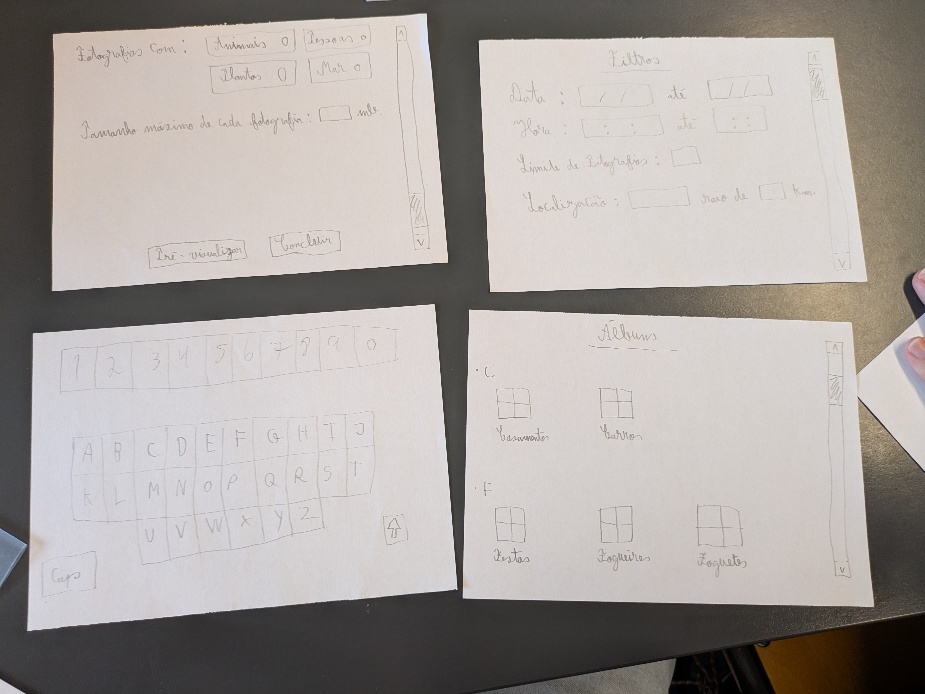 Fotografias com : Animais O Pessoas o
Plantas O Mar o
Tamanho máximo de cada fotografia : mb.
Pré-visualizar Concluir
Filtros
Data : / / até / /
Hora : : : até : :
Limite de Fotografias :
Localização : raio de km.
1 2 3 4 5 6 7 8 9 0
A B C D E F G H I J
K L M N O P Q R S T
U V W X Y Z
Caps
Álbuns
· C.
Casamentos Carros
· F
Festas Fogueiras Foguetes